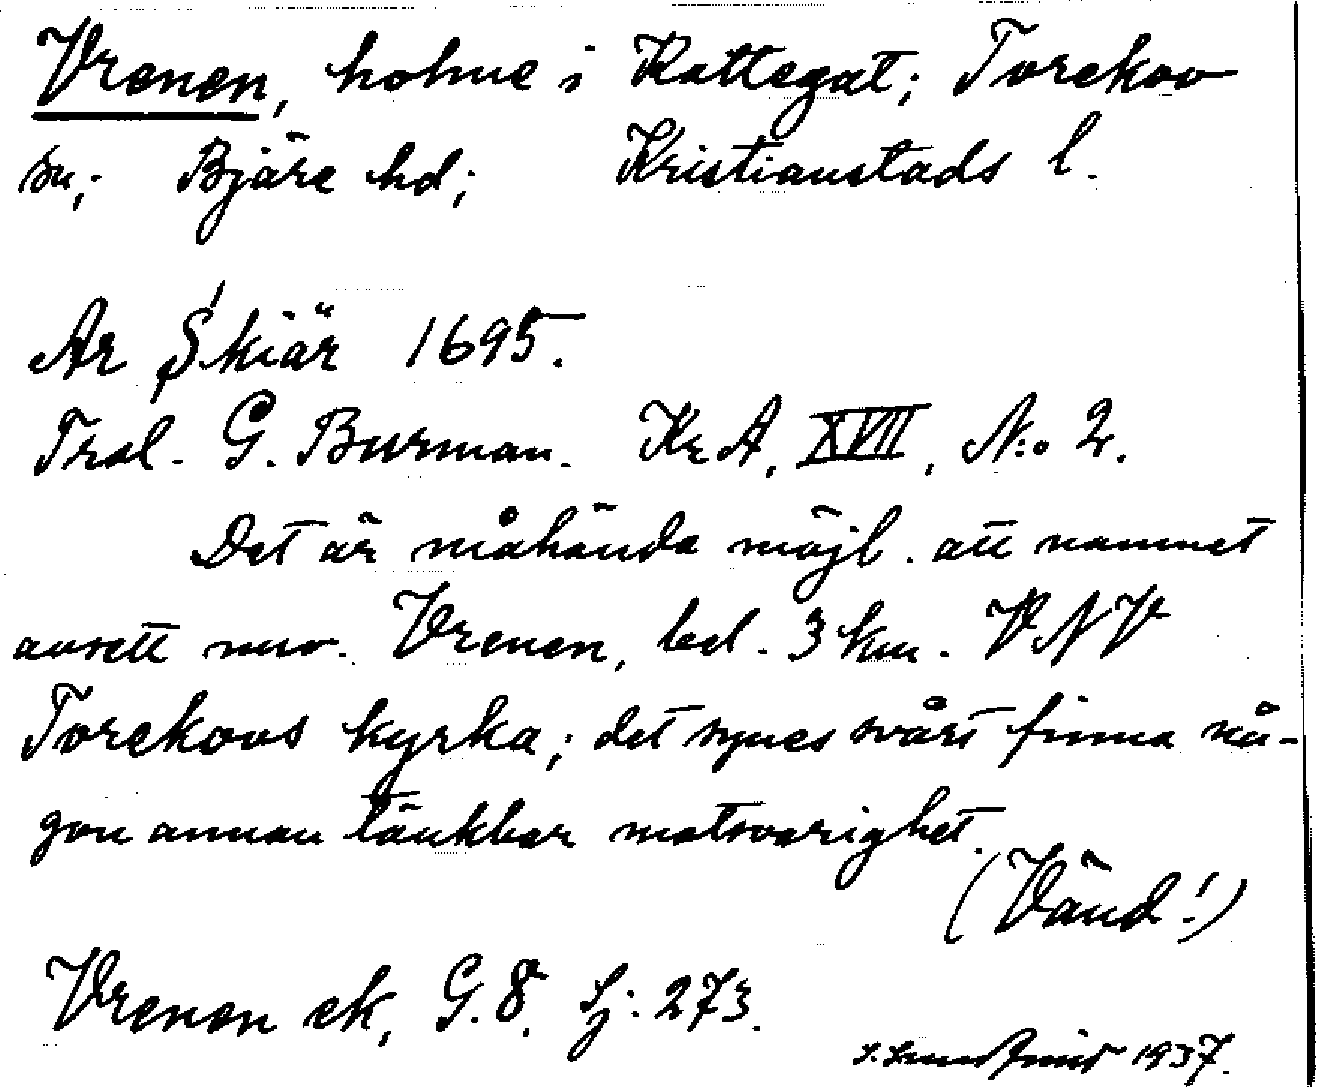 Vrenen, holme i Kattegat; Torekov
sn; Bjäre hd; Kristianstads l.
Ar Skiär 1695.
Tral. G. Burman. KrA, XVII, N:o 2.
Det är måhända möjl. att namnet
avsett nuv. Vrenen, bel. 3 km. VNV
Torekovs kyrka; det synes svårt finna nå-
gon annan tänkbar motsvarighet.
(Vänd!)
Vrenen ek, G.8. Sj: 273.
1937.